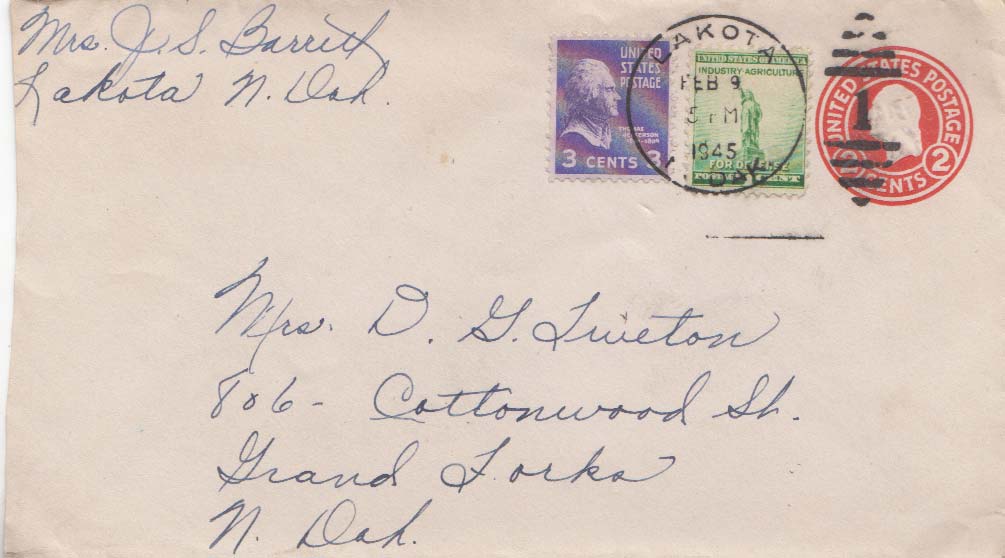 Mrs. J. S. Barrett
Lakota N. Dak.
UNITED
STATES
POSTAGE
THOMAS
JEFFERSON
3 CENTS 3
LAKOTA
FEB 9
5 PM
1945
N. DAK.
UNITED STATES OF AMERICA
INDUSTRY-AGRICULTURE
FOR DEFENSE
1
UNITED STATES POSTAGE
2 CENTS 2
Mrs. D. G. Tweton
806- Cottonwood St.
Grand Forks
N. Dak.